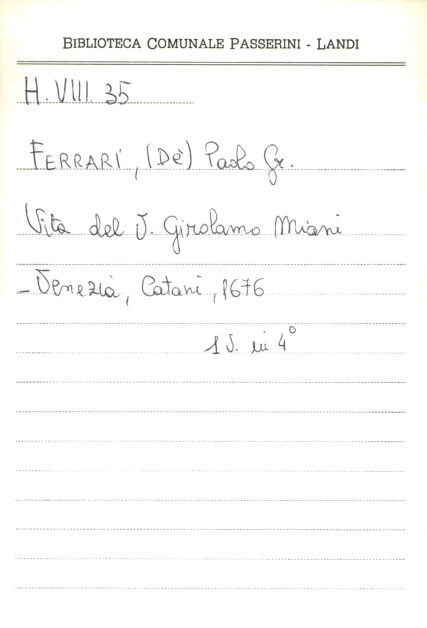 BIBLIOTECA COMUNALE PASSERINI - LANDI
H. VIII. 35
FERRARI, (De') Paolo Gr.
Vita del V. Girolamo Miani
- Venezia, Catani, 1676
1 V. in 4°